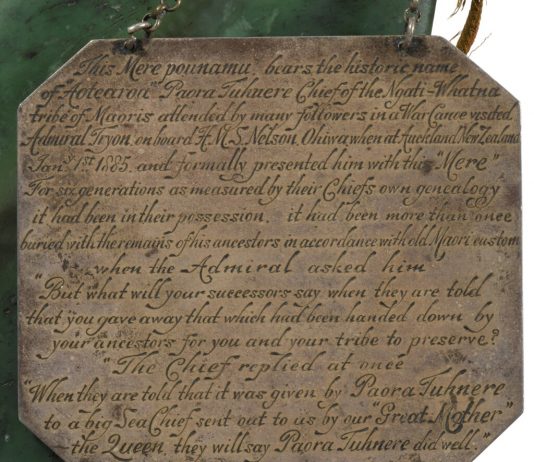 This Mere pounamu, bears the historic name
of "Aotearoa" Paora Tuhnere Chief of the Ngati-Whatna
tribe of Maoris attended by many followers in a War Canoe visited
Admiral Tryon, on board H.M.S. Nelson, Ohiwa, when at Auckland, New Zealand
Jany. 1st 1885, and formally presented him with this "Mere"
For six generations as measured by their Chiefs own genealogy
it had been in their possession, it had been more than once
buried with the remains of his ancestors in accordance with old Maori custom
when the Admiral asked him
"But what will your successors say when they are told
that you gave away that which had been handed down by
your ancestors for you and your tribe to preserve?
"The Chief replied at once
"When they are told that it was given by Paora Tuhnere
to a big Sea Chief sent out to us by our "Great Mother"
the Queen, they will say Paora Tuhnere did well."